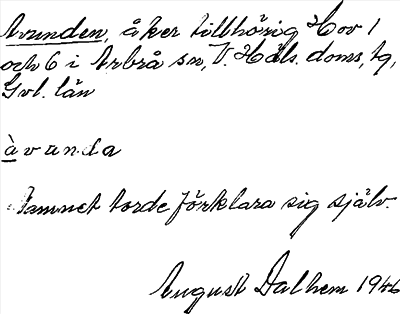 Avunden, åker tillhörig Hov 1
och 6 i Arbrå sn, V. Häls. doms, tg,
Gvl. län
àvunda
Namnet torde förklara sig själv.
August Dalhem 1946